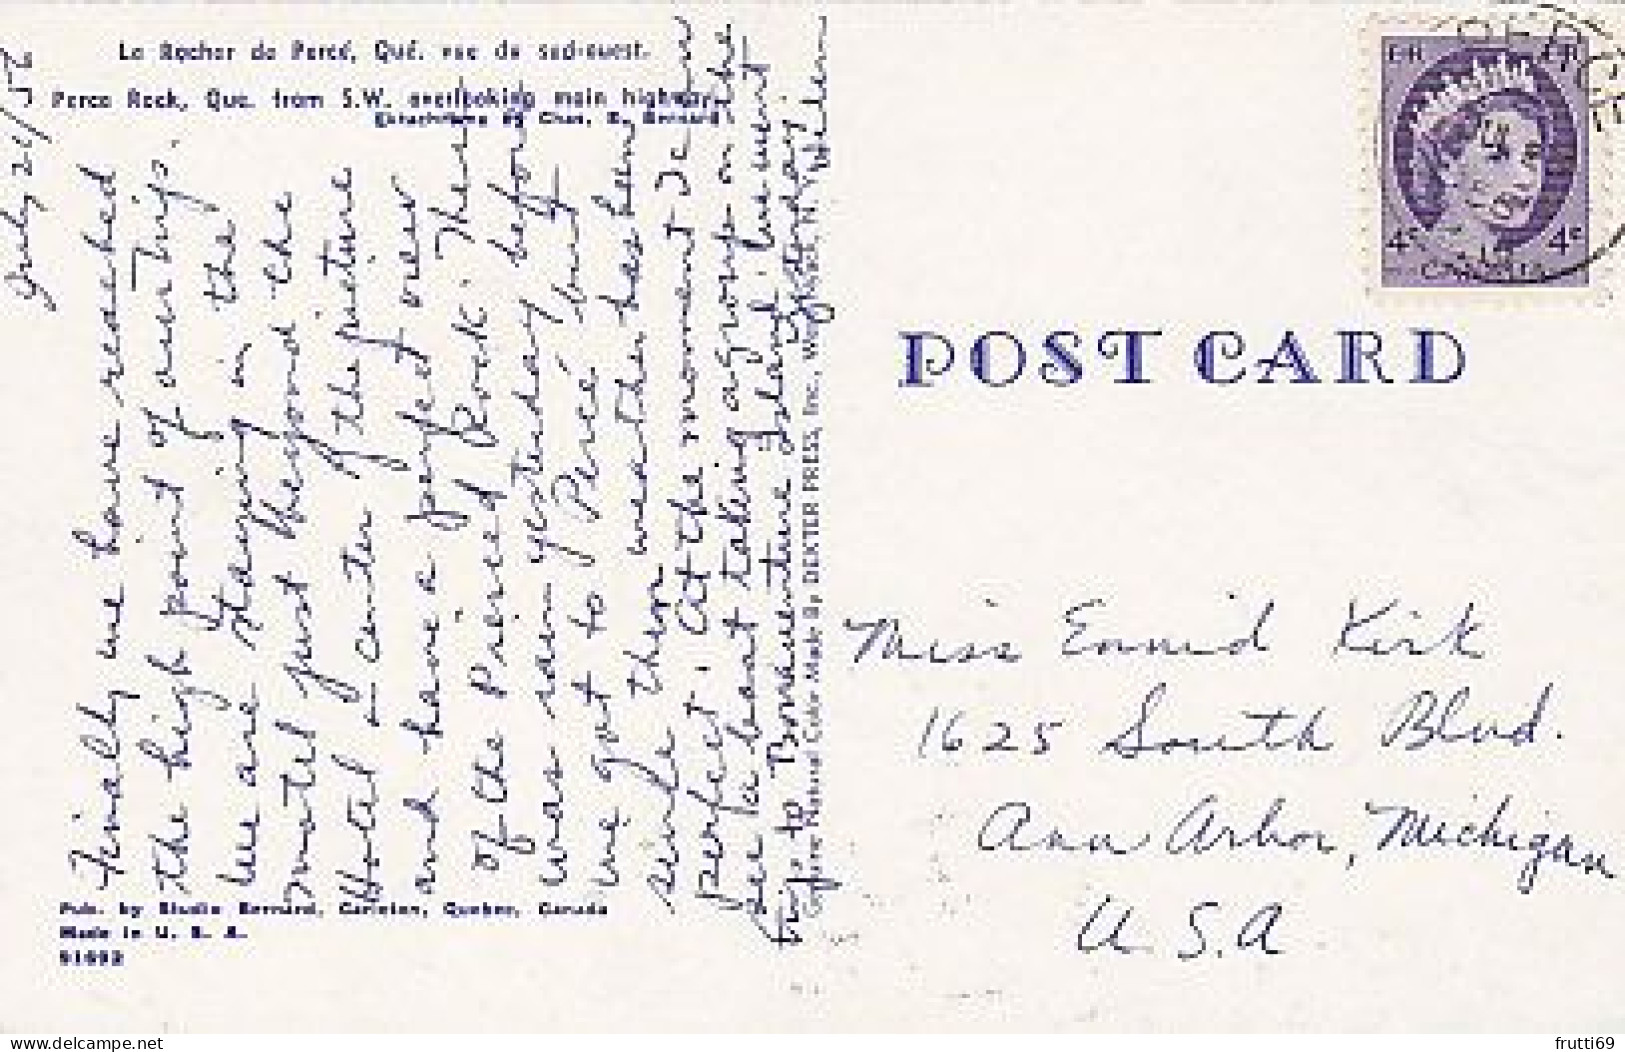 Le Rocher de Percé, Qué. vue du sud-ouest.
Perce Rock, Que. from S.W. overlooking main highway.
Ektachrome by Chas. E. Bernard
July 24/56
Finally we have reached
the high point of our trip.
We are staying in the
motel just beyond the
Hotel in center of the picture
and have a perfect view
of the Pierced Rock. There
was rain yesterday before
we got to Percé but
since then weather has been
perfect. At the moment I can
see a boat taking a group on the
trip to Bonaventure Island. We went
yesterday
Helen
Pub. by Studio Bernard, Carleton, Quebec, Canada
Made in U. S. A.
91692
Genuine Natural Color Made By DEXTER PRESS, Inc., West Nyack, N.Y.
PERCE
EIIR EIIR
4c 4c
CANADA
POST CARD
Miss Ennid Kirk
1625 South Blvd.
Ann Arbor, Michigan
U.S.A.
delcampe.net
frutti69